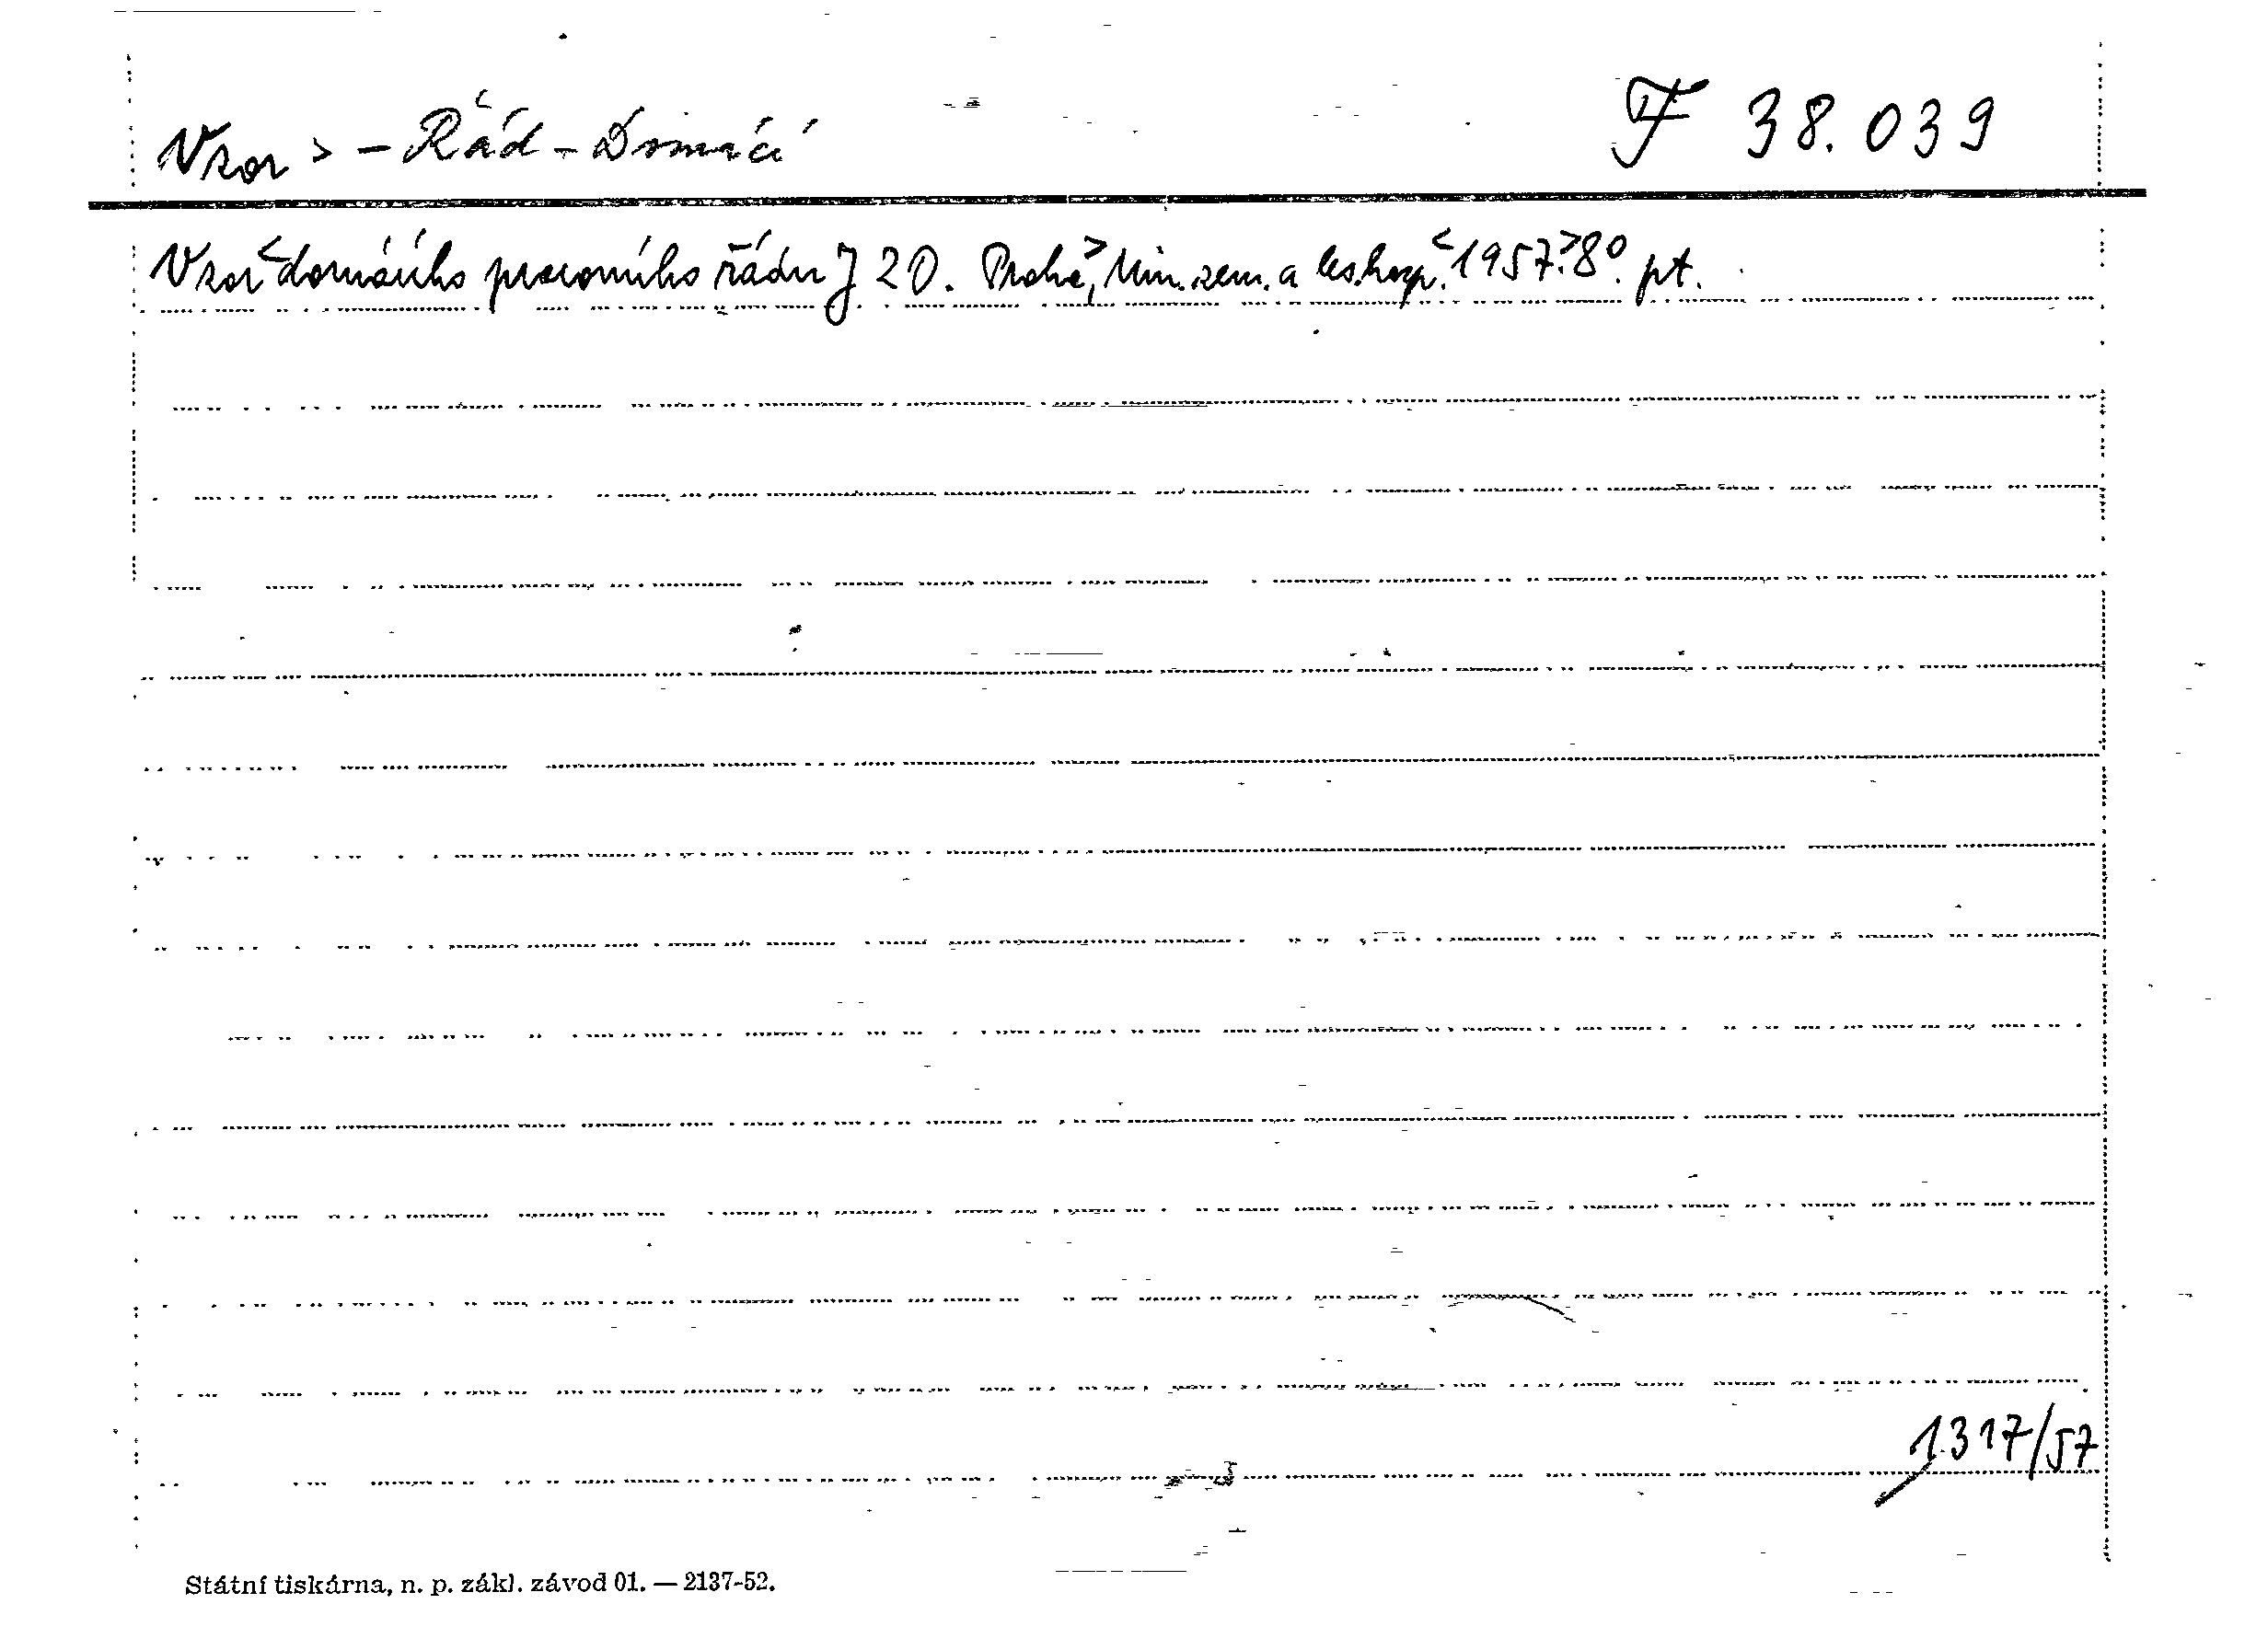 Vzor > - Řád - Domácí F 38.039
Vzor < domácího pracovního řádu J 20. Praha >, Min. zem. a les. hosp. < 1957. > 8°. pt.
1317/57
Státní tiskárna, n. p. zákl. závod 01. — 2137-52.